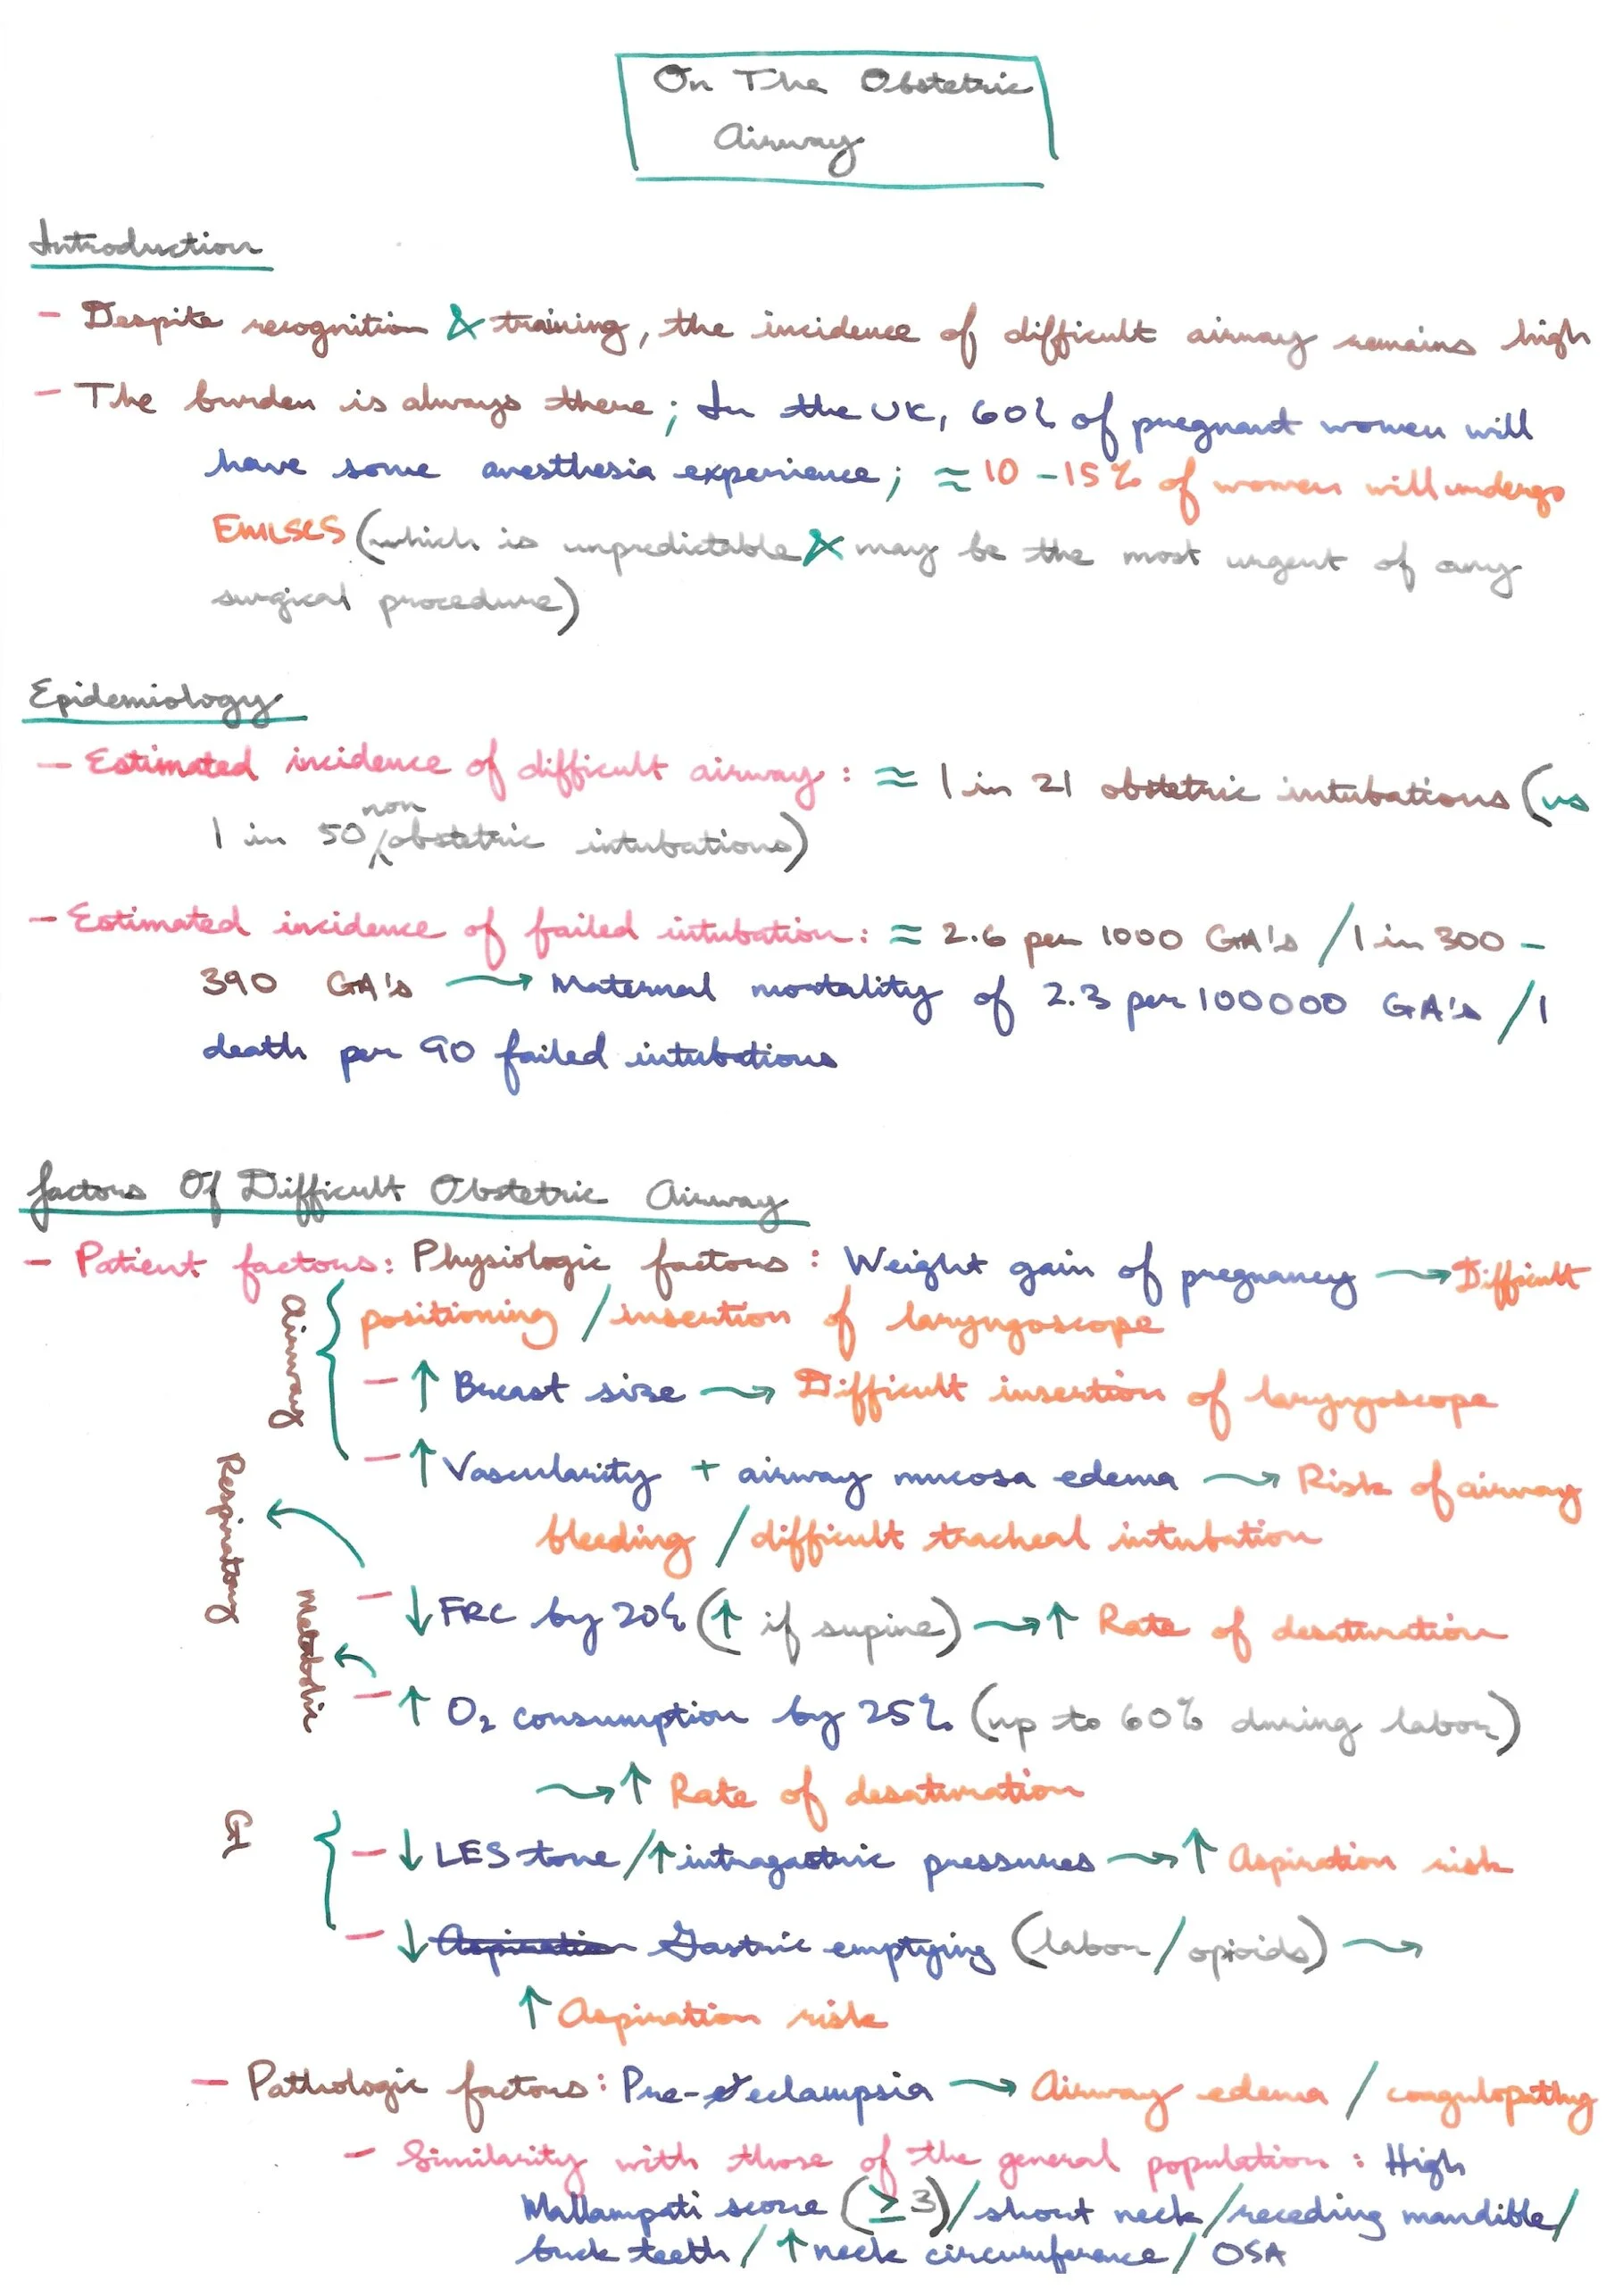 On The Obstetric
Airway
Introduction
- Despite recognition & training, the incidence of difficult airway remains high
- The burden is always there; In the UK, 60% of pregnant women will
have some anesthesia experience; ≈ 10-15% of women will undergo
EMLSCS (which is unpredictable & may be the most urgent of any
surgical procedure)
Epidemiology
- Estimated incidence of difficult airway: ≈ 1 in 21 obstetric intubations (vs
1 in 50 non obstetric intubations)
- Estimated incidence of failed intubation: ≈ 2.6 per 1000 GA's / 1 in 300 -
390 GA's → Maternal mortality of 2.3 per 100000 GA's / 1
death per 90 failed intubations
Factors Of Difficult Obstetric Airway
- Patient factors: Physiologic factors: Weight gain of pregnancy → Difficult
positioning / insertion of laryngoscope
Airway
- ↑ Breast size → Difficult insertion of laryngoscope
- ↑ Vascularity + airway mucosa edema → Risk of airway
bleeding / difficult tracheal intubation
Respiratory
- ↓ FRC by 20% (↑ if supine) → ↑ Rate of desaturation
Metabolic
- ↑ O2 consumption by 25% (up to 60% during labor)
→ ↑ Rate of desaturation
GI
- ↓ LES tone / ↑ intragastric pressures → ↑ Aspiration risk
- ↓ Aspiration Gastric emptying (labor / opioids) →
↑ Aspiration risk
- Pathologic factors: Pre-eclampsia → Airway edema / coagulopathy
- Similarity with those of the general population: High
Mallampati score (≥3) / short neck / receding mandible /
buck teeth / ↑ neck circumference / OSA